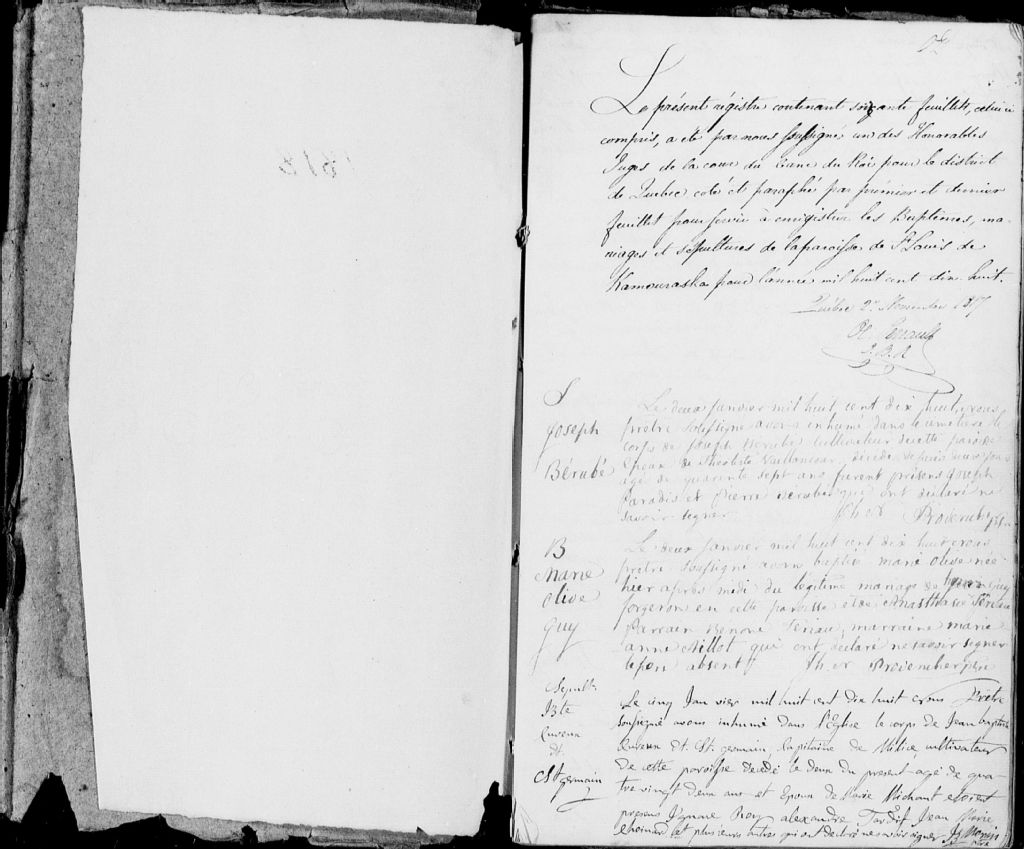 1818
Le présent régistre contenant soixante feuillets, celui ci
compris, a été par nous soussigné un des Honorables
Juges de la cour du Banc du Roi pour le district
de Quebec coté et paraphé par premier et dernier
feuillet pour servir à enrégistrer les Baptêmes, ma-
riages et sépultures de la paroisse de St Louis de
Kamouraska pour l'année mil huit cent dix-huit.
Québec 2 Novembre 1817
Ol. Perrault
J. B. R
S
Joseph
Bérubé
Le deux Janvier mil huit cent dix huit, nous
prêtre soussigné avons inhumé dans le cimetiere le
corps de Joseph Berubé cultivateur de cette paroisse
Epoux de Theotiste Vaillancour, décédé depuis deux jours
agé de quarente sept ans furent présens Joseph
Paradis et Pierre Berubé qui ont déclaré ne
savoir signer
B
Marie
Olive
Guy
Le deux Janvier mil huit cent dix huit nous
prêtre soussigné avons baptisé marie olive née
hier après midi du légitime mariage de Guy
forgeron en cette paroisse et de Anasthasie Teriau
Parrain Bénoni Teriau, marraine marie
anne Millot qui ont déclaré ne savoir signer
le pere absent
Sepult.
Bte
dt.
St germain
Le cinq Jan vier mil huit cent dix huit nous Prêtre
Soussigné avons inhumé dans l'Eglise le corps de Jean baptiste
dt. St. germain, Capitaine de Milice, cultivateur
de cette paroisse decedé le deux du present agé de qua-
tre vingt deux ans et Epoux de Marie Michaut etoient
presens Ignace Roy alexandre Tardif Jean Marie
et plusieurs autres qui ont declaré ne savoir signer